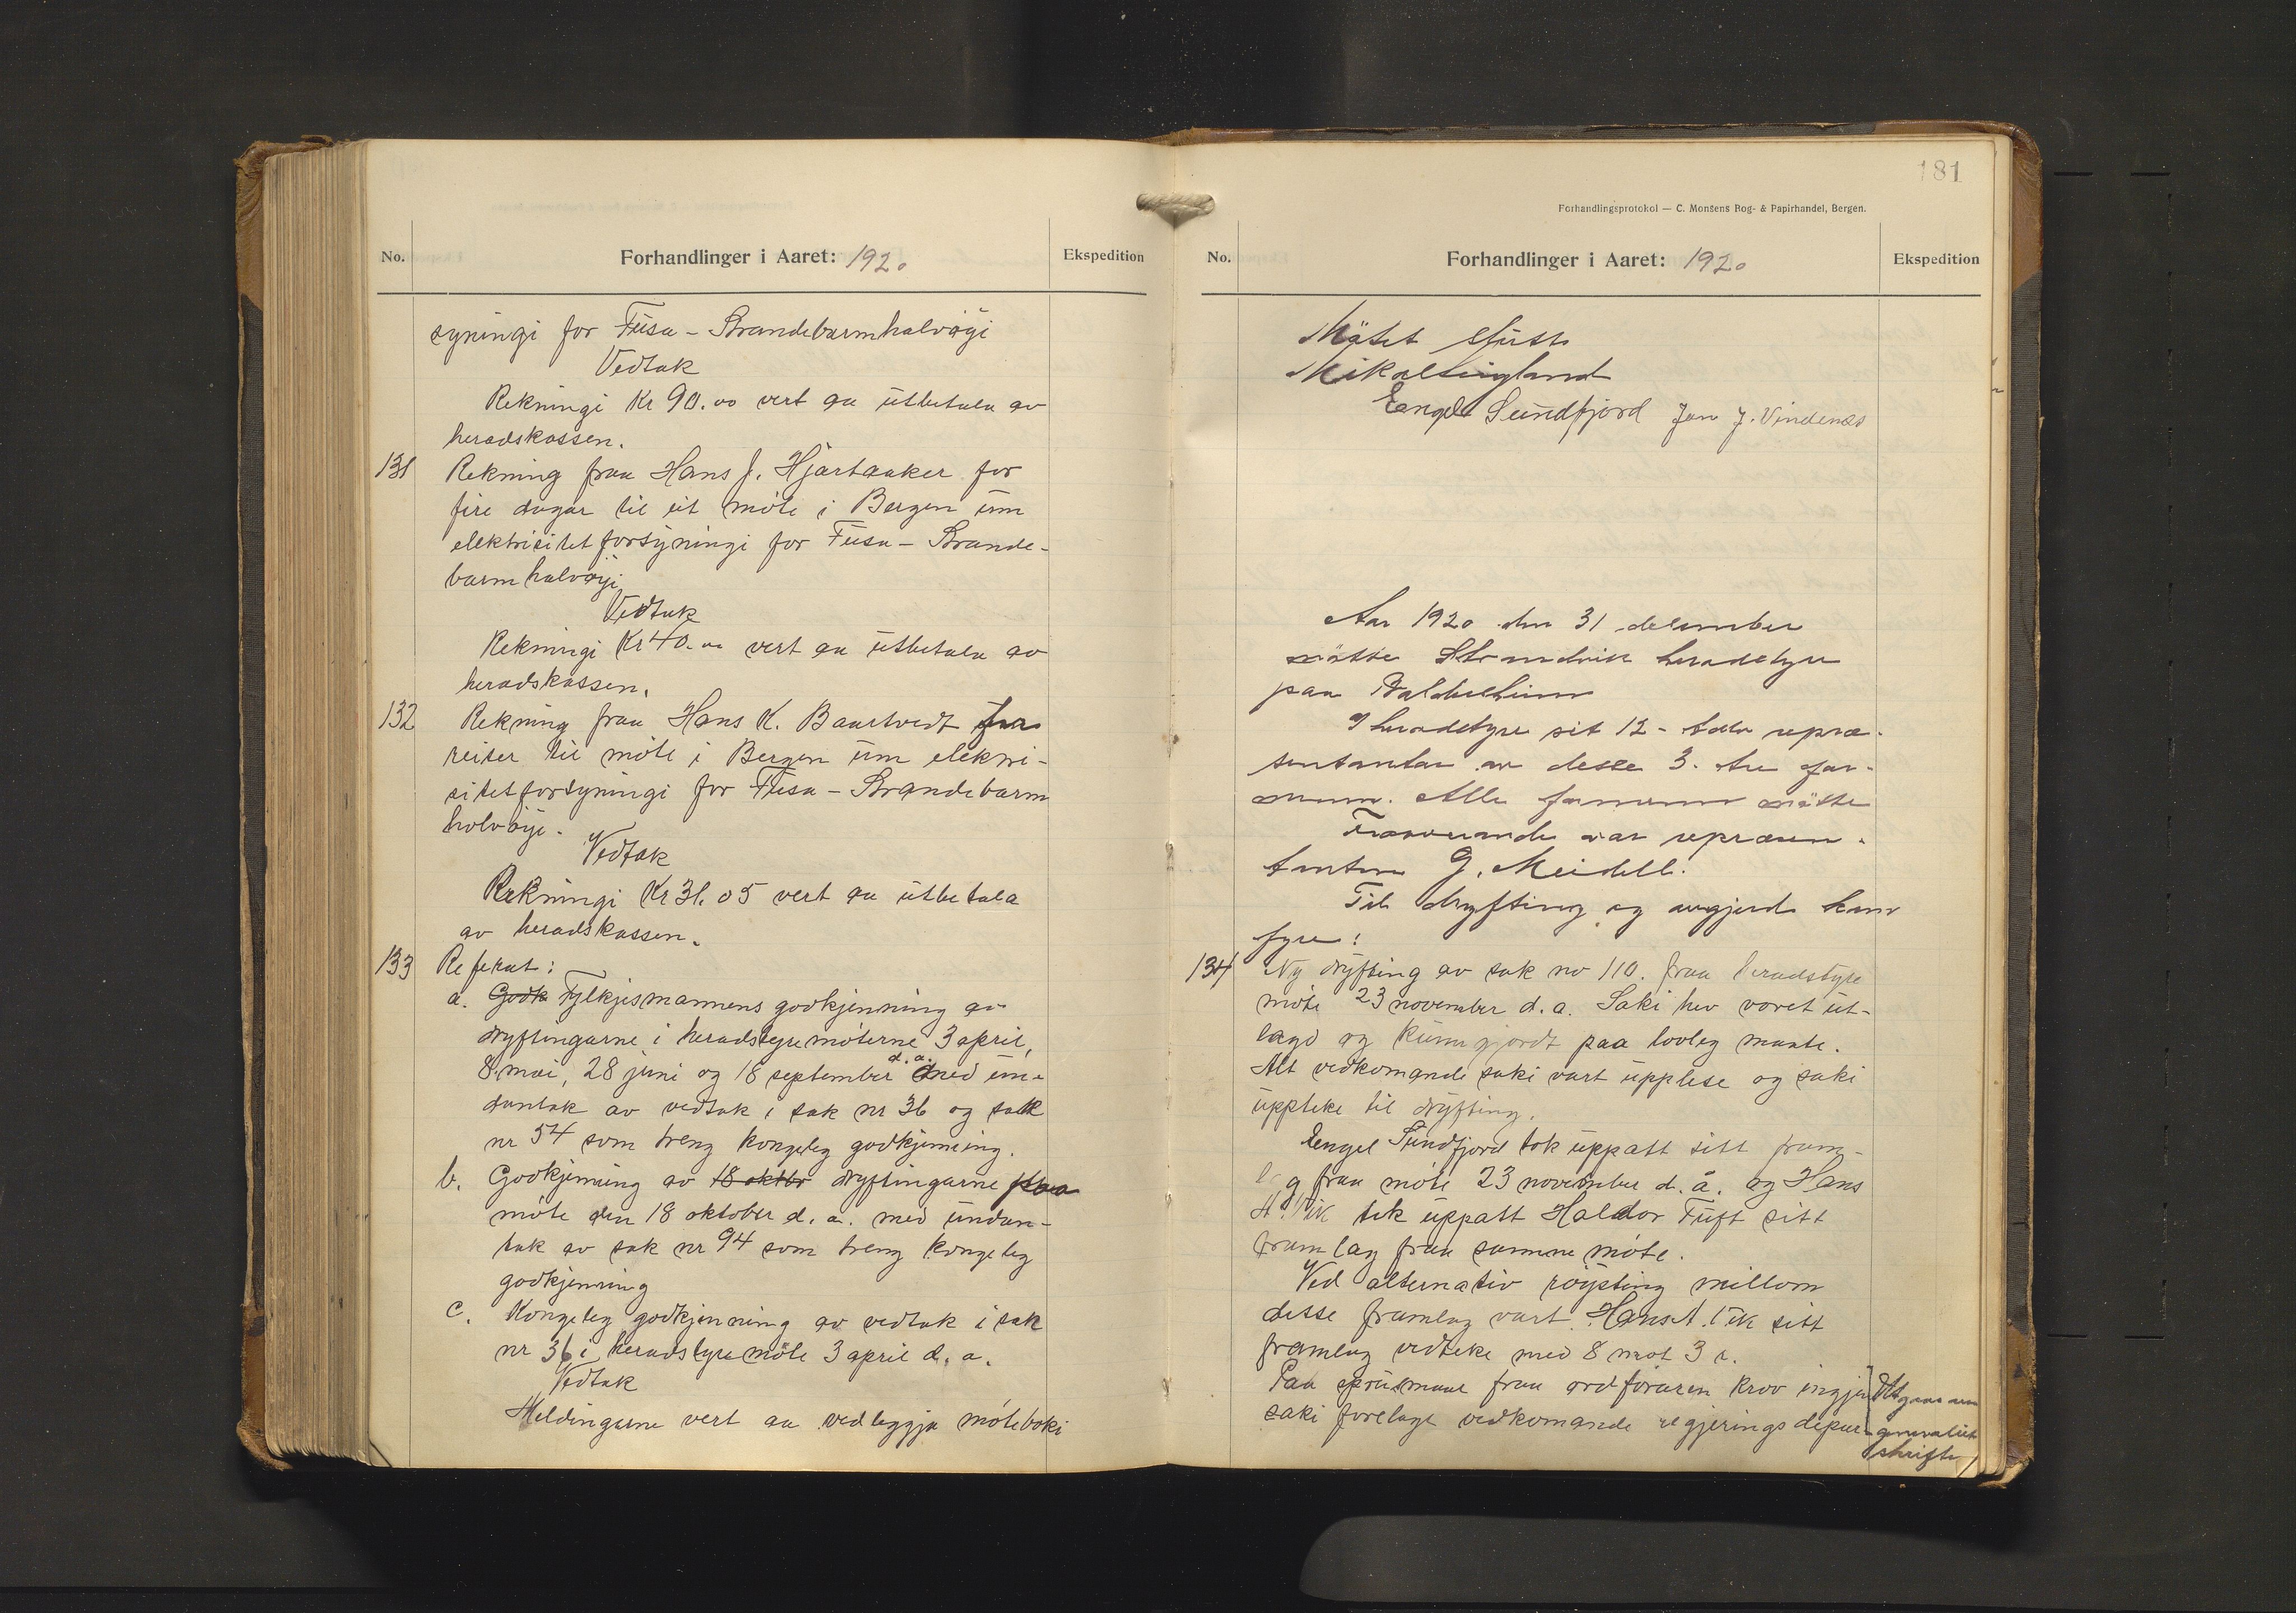 No.
Forhandlinger i Aaret: 1920
Ekspedition
syningi for Fusa - Strandebarmhalvøyi
Vedtak
Rekningi Kr 90.00 vert aa utbetala av
heradskassen.
131 Rekning fraa Hans J. Hjartaaker for
fire dagar til eit møte i Bergen um
elektrisitetforsyningi for Fusa - Strande-
barmhalvøyi
Vedtak
Rekningi Kr 40.00 vert aa utbetala av
heradskassen.
132 Rekning fraa Hans K. Baartvedt for
reiser til møte i Bergen um elektri-
sitetforsyningi for Fusa - Strandebarm
halvøyi.
Vedtak
Rekningi Kr 31.05 vert aa utbetala
av heradskassen.
133 Referat:
a. Godk Fylkjesmannens godkjenning av
dryftingarne i heradstyremøterne 3 april,
8. mai, 28 juni og 18 september d.a. med un-
dantak av vedtak i sak nr 36 og sak
nr 54 som treng kongeleg godkjenning.
b. Godkjenning av 18 oktbr dryftingarne fraa
møte den 18 oktober d. a. med undan-
tak av sak nr 94 som treng kongeleg
godkjenning
c. Kongeleg godkjenning av vedtak i sak
nr 36 i heradstyremøte 3 april d. a.
Vedtak
Meldingarne vert aa vedleggja møteboki
181
Forhandlingsprotokol — C. Monsens Bog- & Papirhandel, Bergen.
No.
Forhandlinger i Aaret: 1920
Ekspedition
Møtet slutt
Mikal Engeland
Engel Sundfjord Jan J. Vindenes
Aar 1920 den 31 desember
møtte Strandvik heradstyre
paa Baldersheim
I heradstyre sit 12 - tolv repræ-
sentantar av desse 3. tre for-
menn. Alle formenn møtte
Fraaverande var repræsen-
tanten G. Meidell.
Til dryfting og avgjerd kom
fyre:
134 Ny dryfting av sak no 110. fraa heradstyre
møte 23 november d. a. Saki hev voret ut-
lagd og kunngjordt paa lovleg maate.
Alt vedkomande saki vart upplese og saki
uppteke til dryfting.
Engel Sundfjord tok uppatt sitt fram-
lag fraa møte 23 november d. å. og Hans
A. Vik tok uppatt Haldor Tuft sitt
framlag fraa samme møte.
Ved alternativ røysting millom
desse framlag vart Hans A. Vik sitt
framlag vedteke med 8 mot 3 r.
Paa spursmaal fraa ordføraren krov ingjen
saki forelagt vedkomande regjeringsdepar-